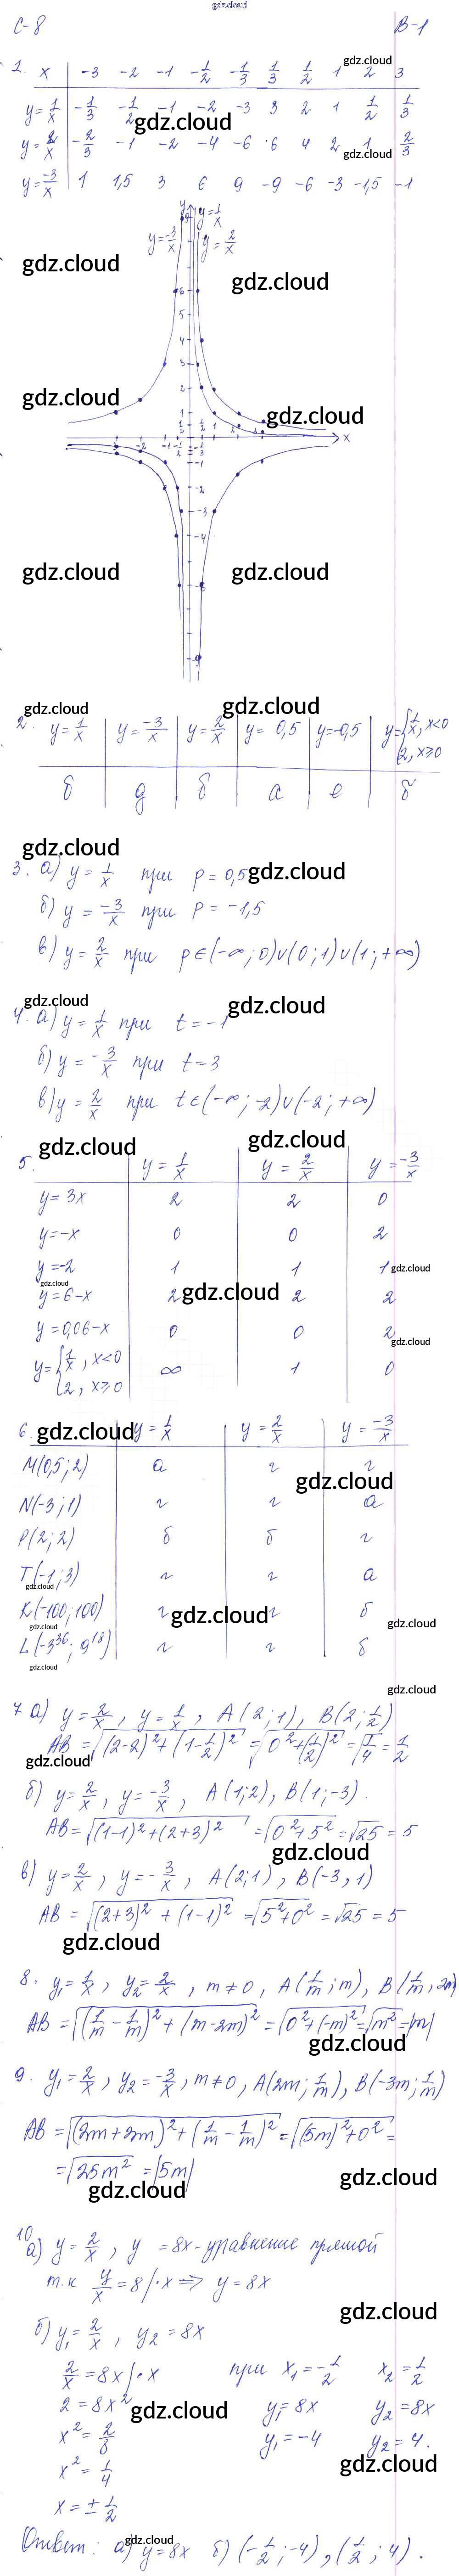 gdz.cloud
С-8 В-1
1. x -3 -2 -1 -1/2 -1/3 1/3 1/2 1 2 3
y=1/x -1/3 -1/2 -1 -2 -3 3 2 1 1/2 1/3
y=2/x -2/3 -1 -2 -4 -6 6 4 2 1 2/3
y=-3/x 1 1,5 3 6 9 -9 -6 -3 -1,5 -1
y=-3/x y=1/x
y=2/x
2. y=1/x y=-3/x y=2/x y=0,5 y=-0,5 y={1/x, x<0
2, x≥0
б д б а е б
3. а) y=1/x при p=0,5
б) y=-3/x при p=-1,5
в) y=2/x при p∈(-∞;0)∪(0;1)∪(1;+∞)
4. а) y=1/x при t=-1
б) y=-3/x при t=3
в) y=2/x при t∈(-∞;-2)∪(-2;+∞)
5. y=1/x y=2/x y=-3/x
y=3x 2 2 0
y=-x 0 0 2
y=-2 1 1 1
y=6-x 2 2 2
y=0,06-x 0 0 2
y={1/x, x<0 ∞ 1 0
2, x≥0
6. y=1/x y=2/x y=-3/x
M(0,5;2) а г г
N(-3;1) г г а
P(2;2) б б г
T(-1;3) г г а
K(-100;100) г г б
L(-3^36;9^18) г г б
7. а) y=2/x, y=1/x, A(2;1), B(2;1/2)
AB=√((2-2)²+(1-1/2)²)=√(0²+(1/2)²)=√(1/4)=1/2
б) y=2/x, y=-3/x, A(1;2), B(1;-3).
AB=√((1-1)²+(2+3)²)=√(0²+5²)=√25=5
в) y=2/x, y=-3/x, A(2;1), B(-3,1)
AB=√((2+3)²+(1-1)²)=√(5²+0²)=√25=5
8. y₁=1/x, y₂=2/x, m≠0, A(1/m;m), B(1/m;2m)
AB=√((1/m-1/m)²+(m-2m)²)=√(0²+(-m)²)=√m²=|m|
9. y₁=2/x, y₂=-3/x, m≠0, A(2m;1/m), B(-3m;1/m)
AB=√((2m+3m)²+(1/m-1/m)²)=√((5m)²+0²)=
=√25m²=|5m|
10
а) y=2/x, y=8x-уравнение прямой
т.к y/x=8|·x⇒ y=8x
б) y₁=2/x, y₂=8x
2/x=8x|·x при x₁=-1/2 x₂=1/2
2=8x² y₁=8x y₂=8x
x²=2/8 y₁=-4 y₂=4.
x²=1/4
x=±1/2
Ответ: а) y=8x б) (-1/2;-4), (1/2;4).